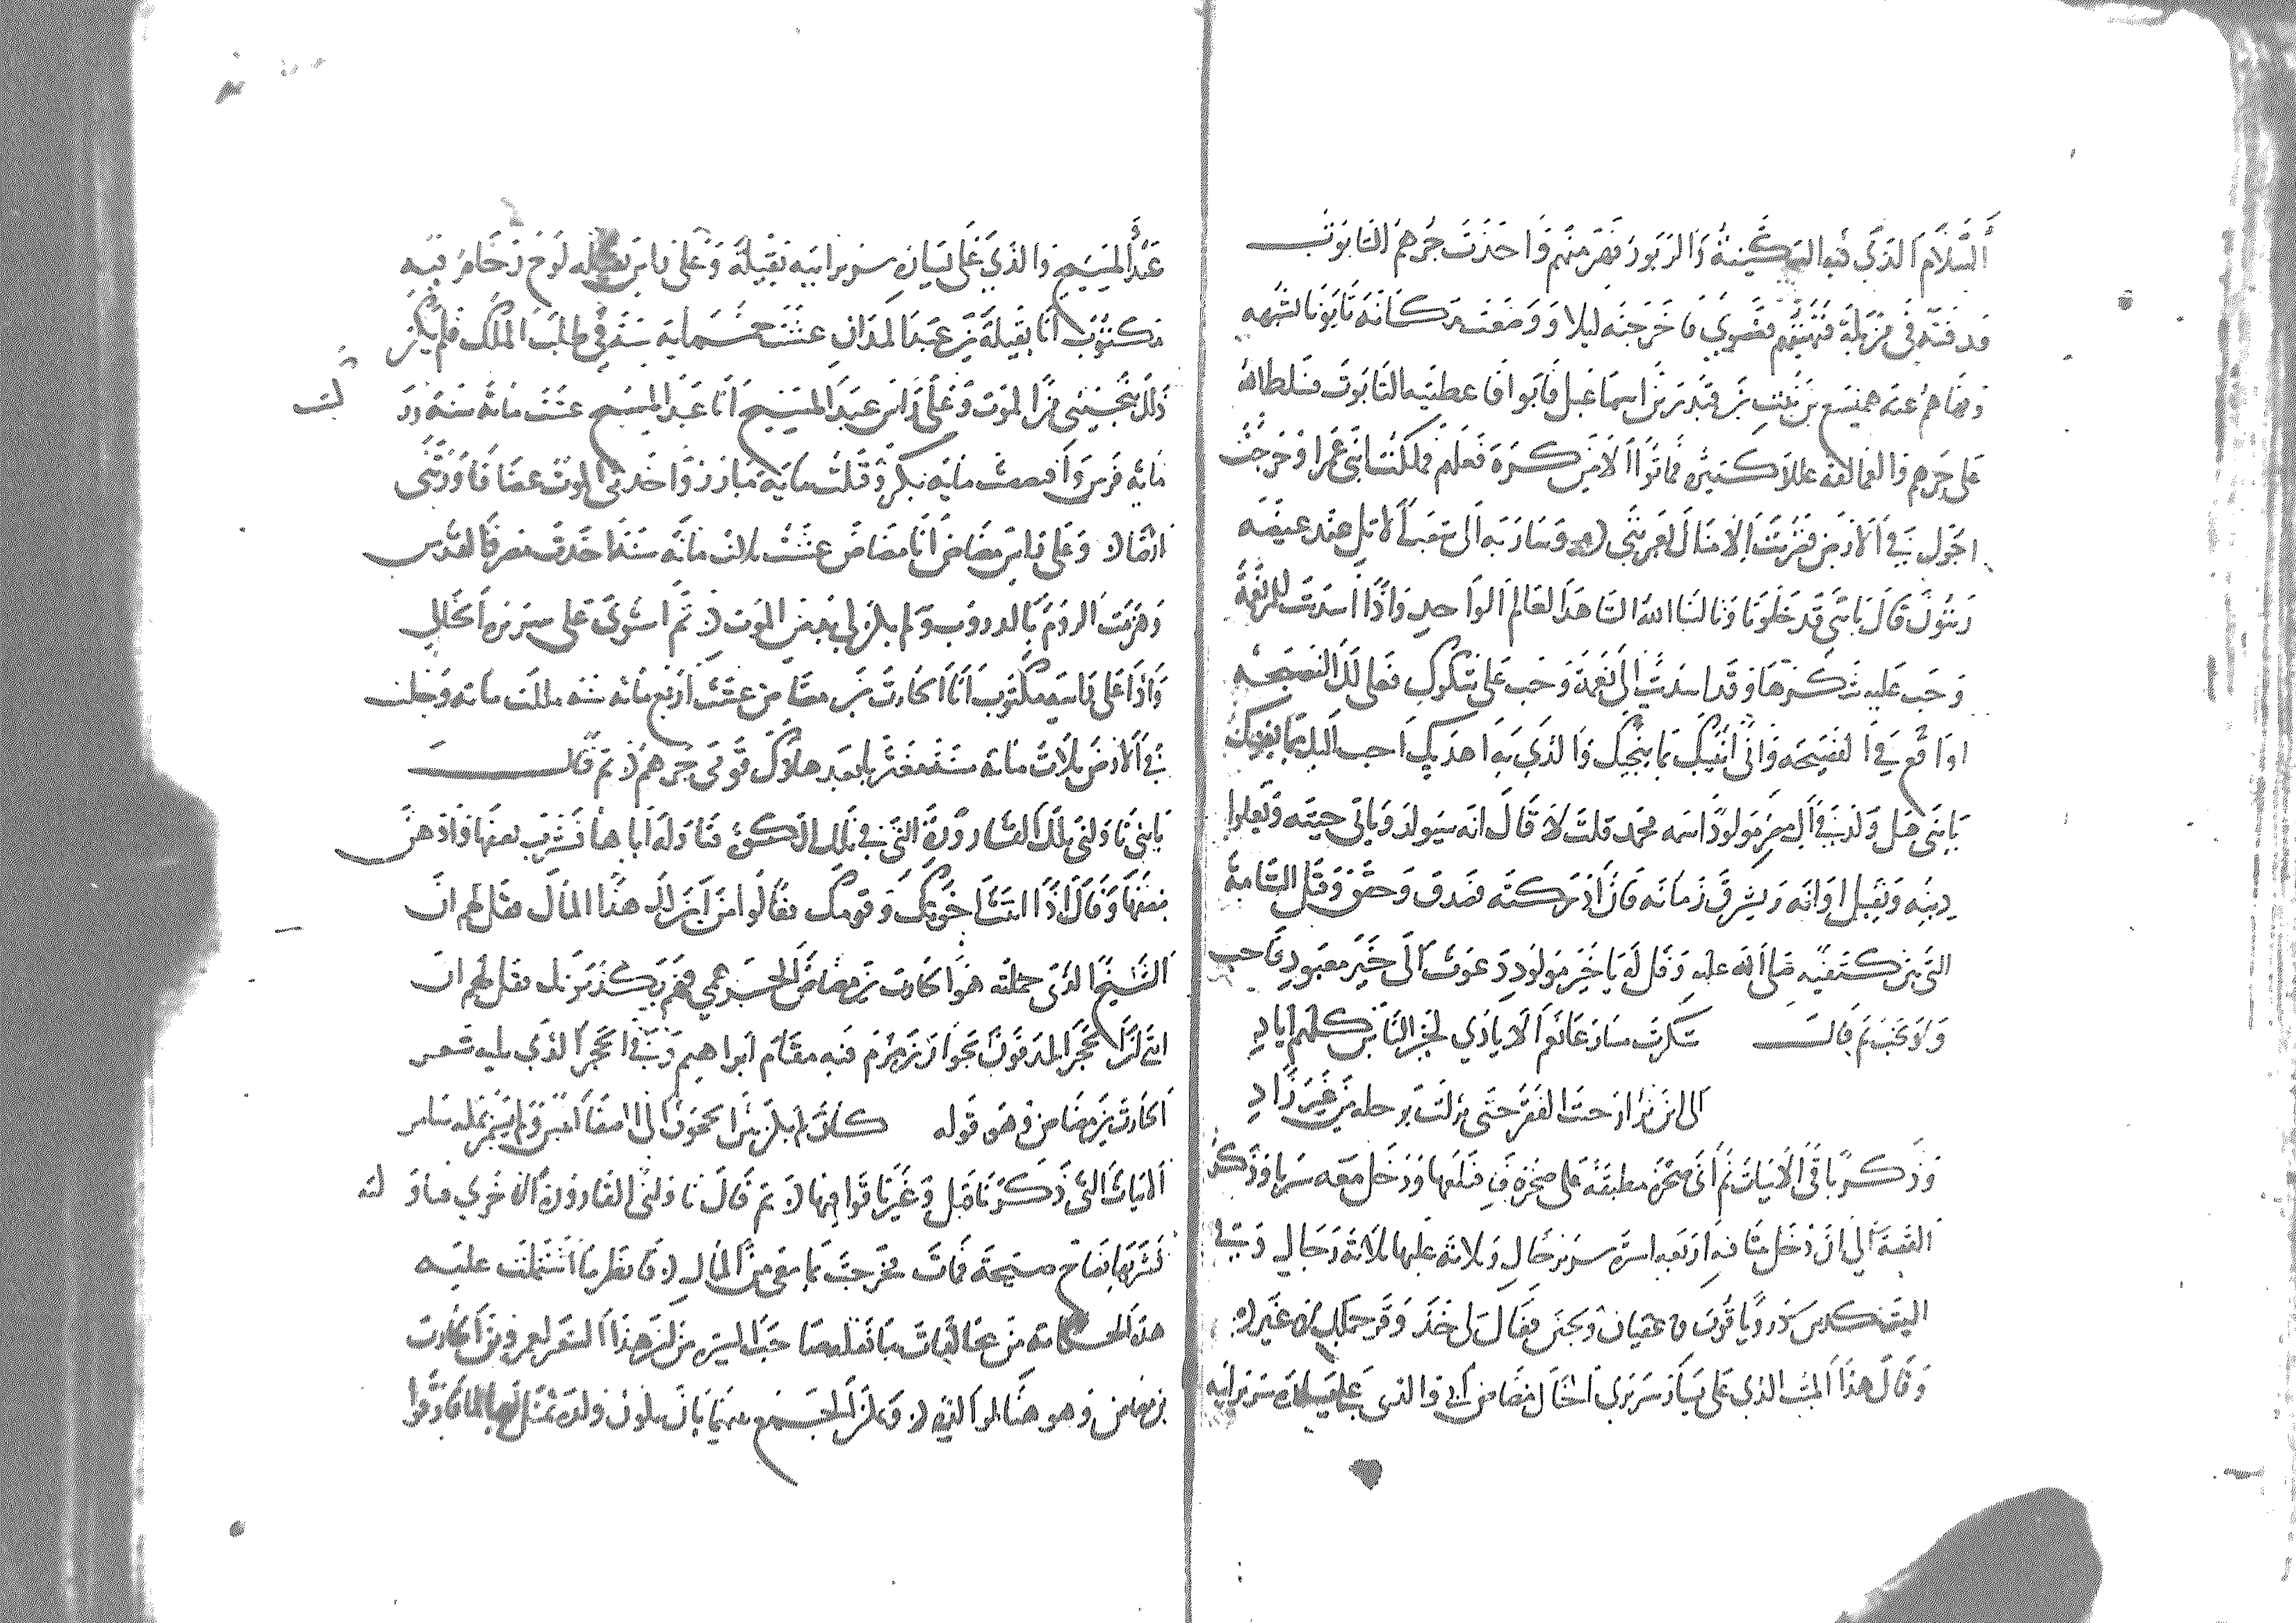 السلام الذي فيه السكينة والزبور فهزمتهم واخذت جرهم التابوت
فدفنته في مزبلة فنهيتهم فعصوني فاخرجته ليلا ووضعت مكانه تابوتا شبهه
ونهاهم عنه هميسع بن نبت بن قيدر بن اسماعيل فابوا فاعطيته التابوت فسلط الله
على جرهم والعمالقة عللا كثيرة فماتوا الا من كره فعلهم فملكت ابني عمرا وخرجت
اجول في الارض فضربت الامثال لغربتي وسار به الى شعب الاثل عند عيضه
زيتون قال يا بني قد خلونا وثالثنا الله هذا العالم الواحد واذا اسديت للمرء نعمة
وجب عليه شكرها وقد اسديت الي نعمة وجب علي شكرك فعلي لك النصيحة
او اقع في الفضيحة واني انبيك بما ينجيك والذي به اهديك احب اليك بما يغنيك
يا بني هل ولد في ال مضر مولود اسمه محمد قلت لا قال انه سيولد وياتي حينه ويعلوا
دينه ويقبل اوانه ويشرق زمانه فان ادركته فصدق وحقق وقبل الشامة
التي بين كتفيه صلى الله عليه وقل له يا خير مولود دعوت الى خير معبود فاجب
ولا تخب ثم قال شكرت الايادي لخير الناس كلهم اياد
حتى نزلت برحله من غير زاد
وذكر باقي الابيات ثم اتى صخرة مطبقة على صخرة فقلعها ودخل معه سربا وذكر
القصة الى ان دخل بيتا فيه اربعة اسرة سرير خال وثلاثة عليها ثلاثة رجال وفي
البيت كرسي در وياقوت وعقيان ولجين فقال لي خذ وقر جملك لا غير
وقال هذا الميت الذي على يسار سريري الخال مضاض ابي والذي على يساره سرير ابيه
عبد المسيح والذي على يساره سرير ابيه نفيلة وعلى راس نفيلة لوح رخام فيه
مكتوب انا نفيلة بن عبد المدان عشت خمسماية سنة في طلب الملك فلم يكن
ذلك ينجيني من الموت وعلى راس عبد المسيح انا عبد المسيح عشت مائة سنة وركبت
مائة فرس وافتضضت مائة بكر وقتلت مائة مبارز واخذني الموت غصبا فاورثني
ارضا وعلى راس مضاض انا مضاض عشت ثلاث مائة سنة اخذت مصر والقدس
وهزمت الروم بالدروب ولم يكن لي بد من الموت ثم استوى على سريره الخالي
واذا على راسه مكتوب انا الحارث بن مضاض عشت اربع مائة سنة ملكت مائة وجلت
في الارض ثلاث مائة سنة متغربا بعد هلاك قومي جرهم ثم قال
يا بني ناولني تلك القارورة التي في تلك الكوة فناوله اياها فشرب بعضها وادهن
ببعضها وقال اذا اتيت اخوتك وقومك فقالوا من اين لك هذا المال فقل لهم ان
الشيخ الذي حملته هو الحارث بن مضاض الجرهمي فهم يكذبونك فقل لهم ان
ايتي الحجر المدفون بجوار زمزم فيه مقام ابراهيم وفي الحجر الذي يليه شعر
الحارث بن مضاض وهو قوله كان لم يكن بين الحجون الى الصفا انيس ولم يسمر بمكة سامر
الابيات التي ذكرنا قبل وغير قوافيها ثم قال ناولني القارورة الاخرى فناولته
فشربها فصاح صيحة فمات فخرجت بما معي من المال فانظر ما اشتملت عليه
هذه الحكاية من عجائب ما نقله صاحب السيرة من ان هذا الشعر لعمرو بن الحارث
بن مضاض وهو هنا لوالده